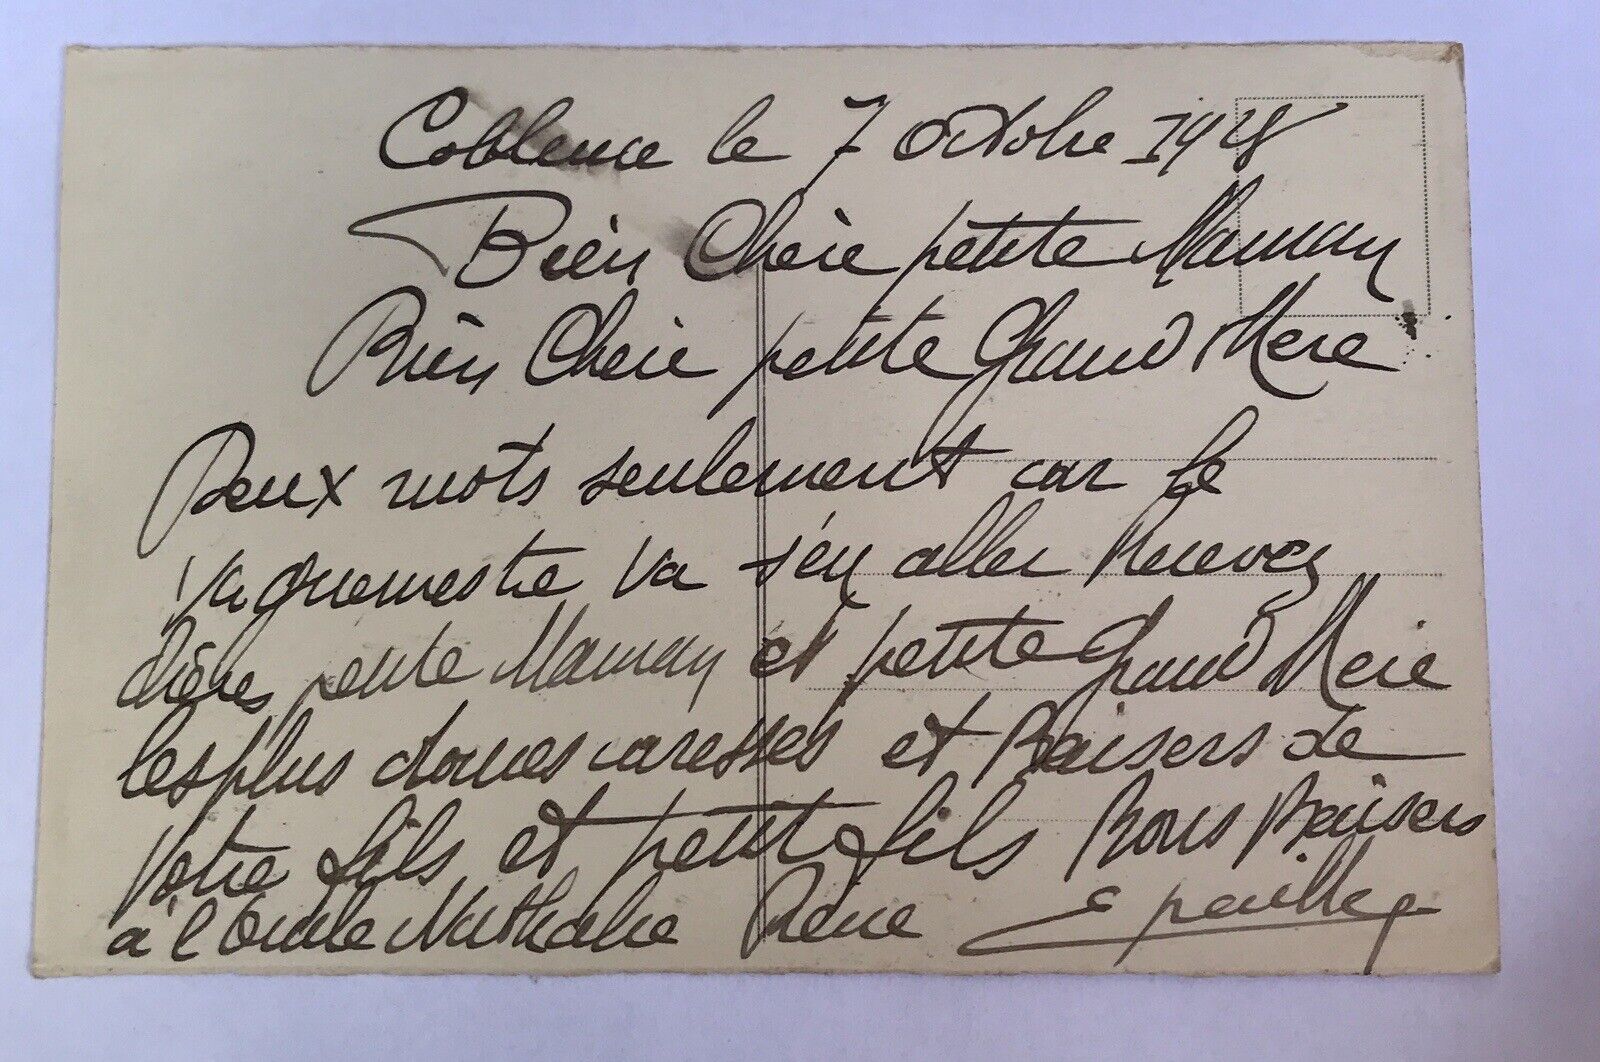 Coblence le 7 octobre 1928
Bien Chère petite Maman
Bien Chère petite Grand Mere
Deux mots seulement car le
vaguemestre va s'en aller Recevez
chères petite Maman et petite Grand Mere
les plus douces caresses et Baisers de
Votre fils et petit fils Bons Baisers
à l'Oncle René